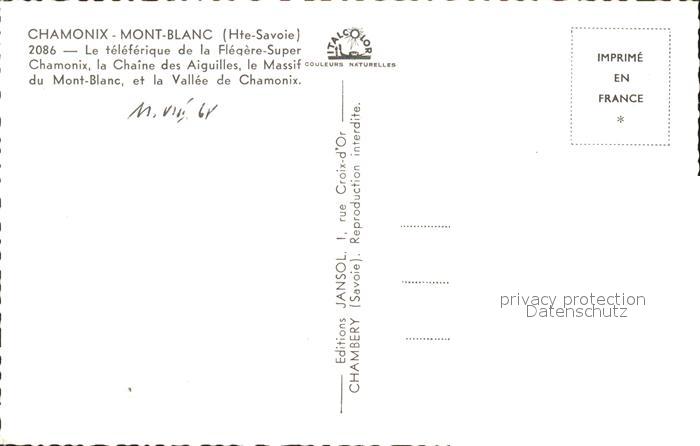 CHAMONIX - MONT-BLANC (Hte-Savoie)
2086 — Le téléférique de la Flégère-Super
Chamonix, la Chaîne des Aiguilles, le Massif
du Mont-Blanc, et la Vallée de Chamonix.
ITALCOLOR
COULEURS NATURELLES
IMPRIMÉ
EN
FRANCE
*
Editions JANSOL, 1, rue Croix-d'Or
CHAMBERY (Savoie). Reproduction interdite.
privacy protection
Datenschutz